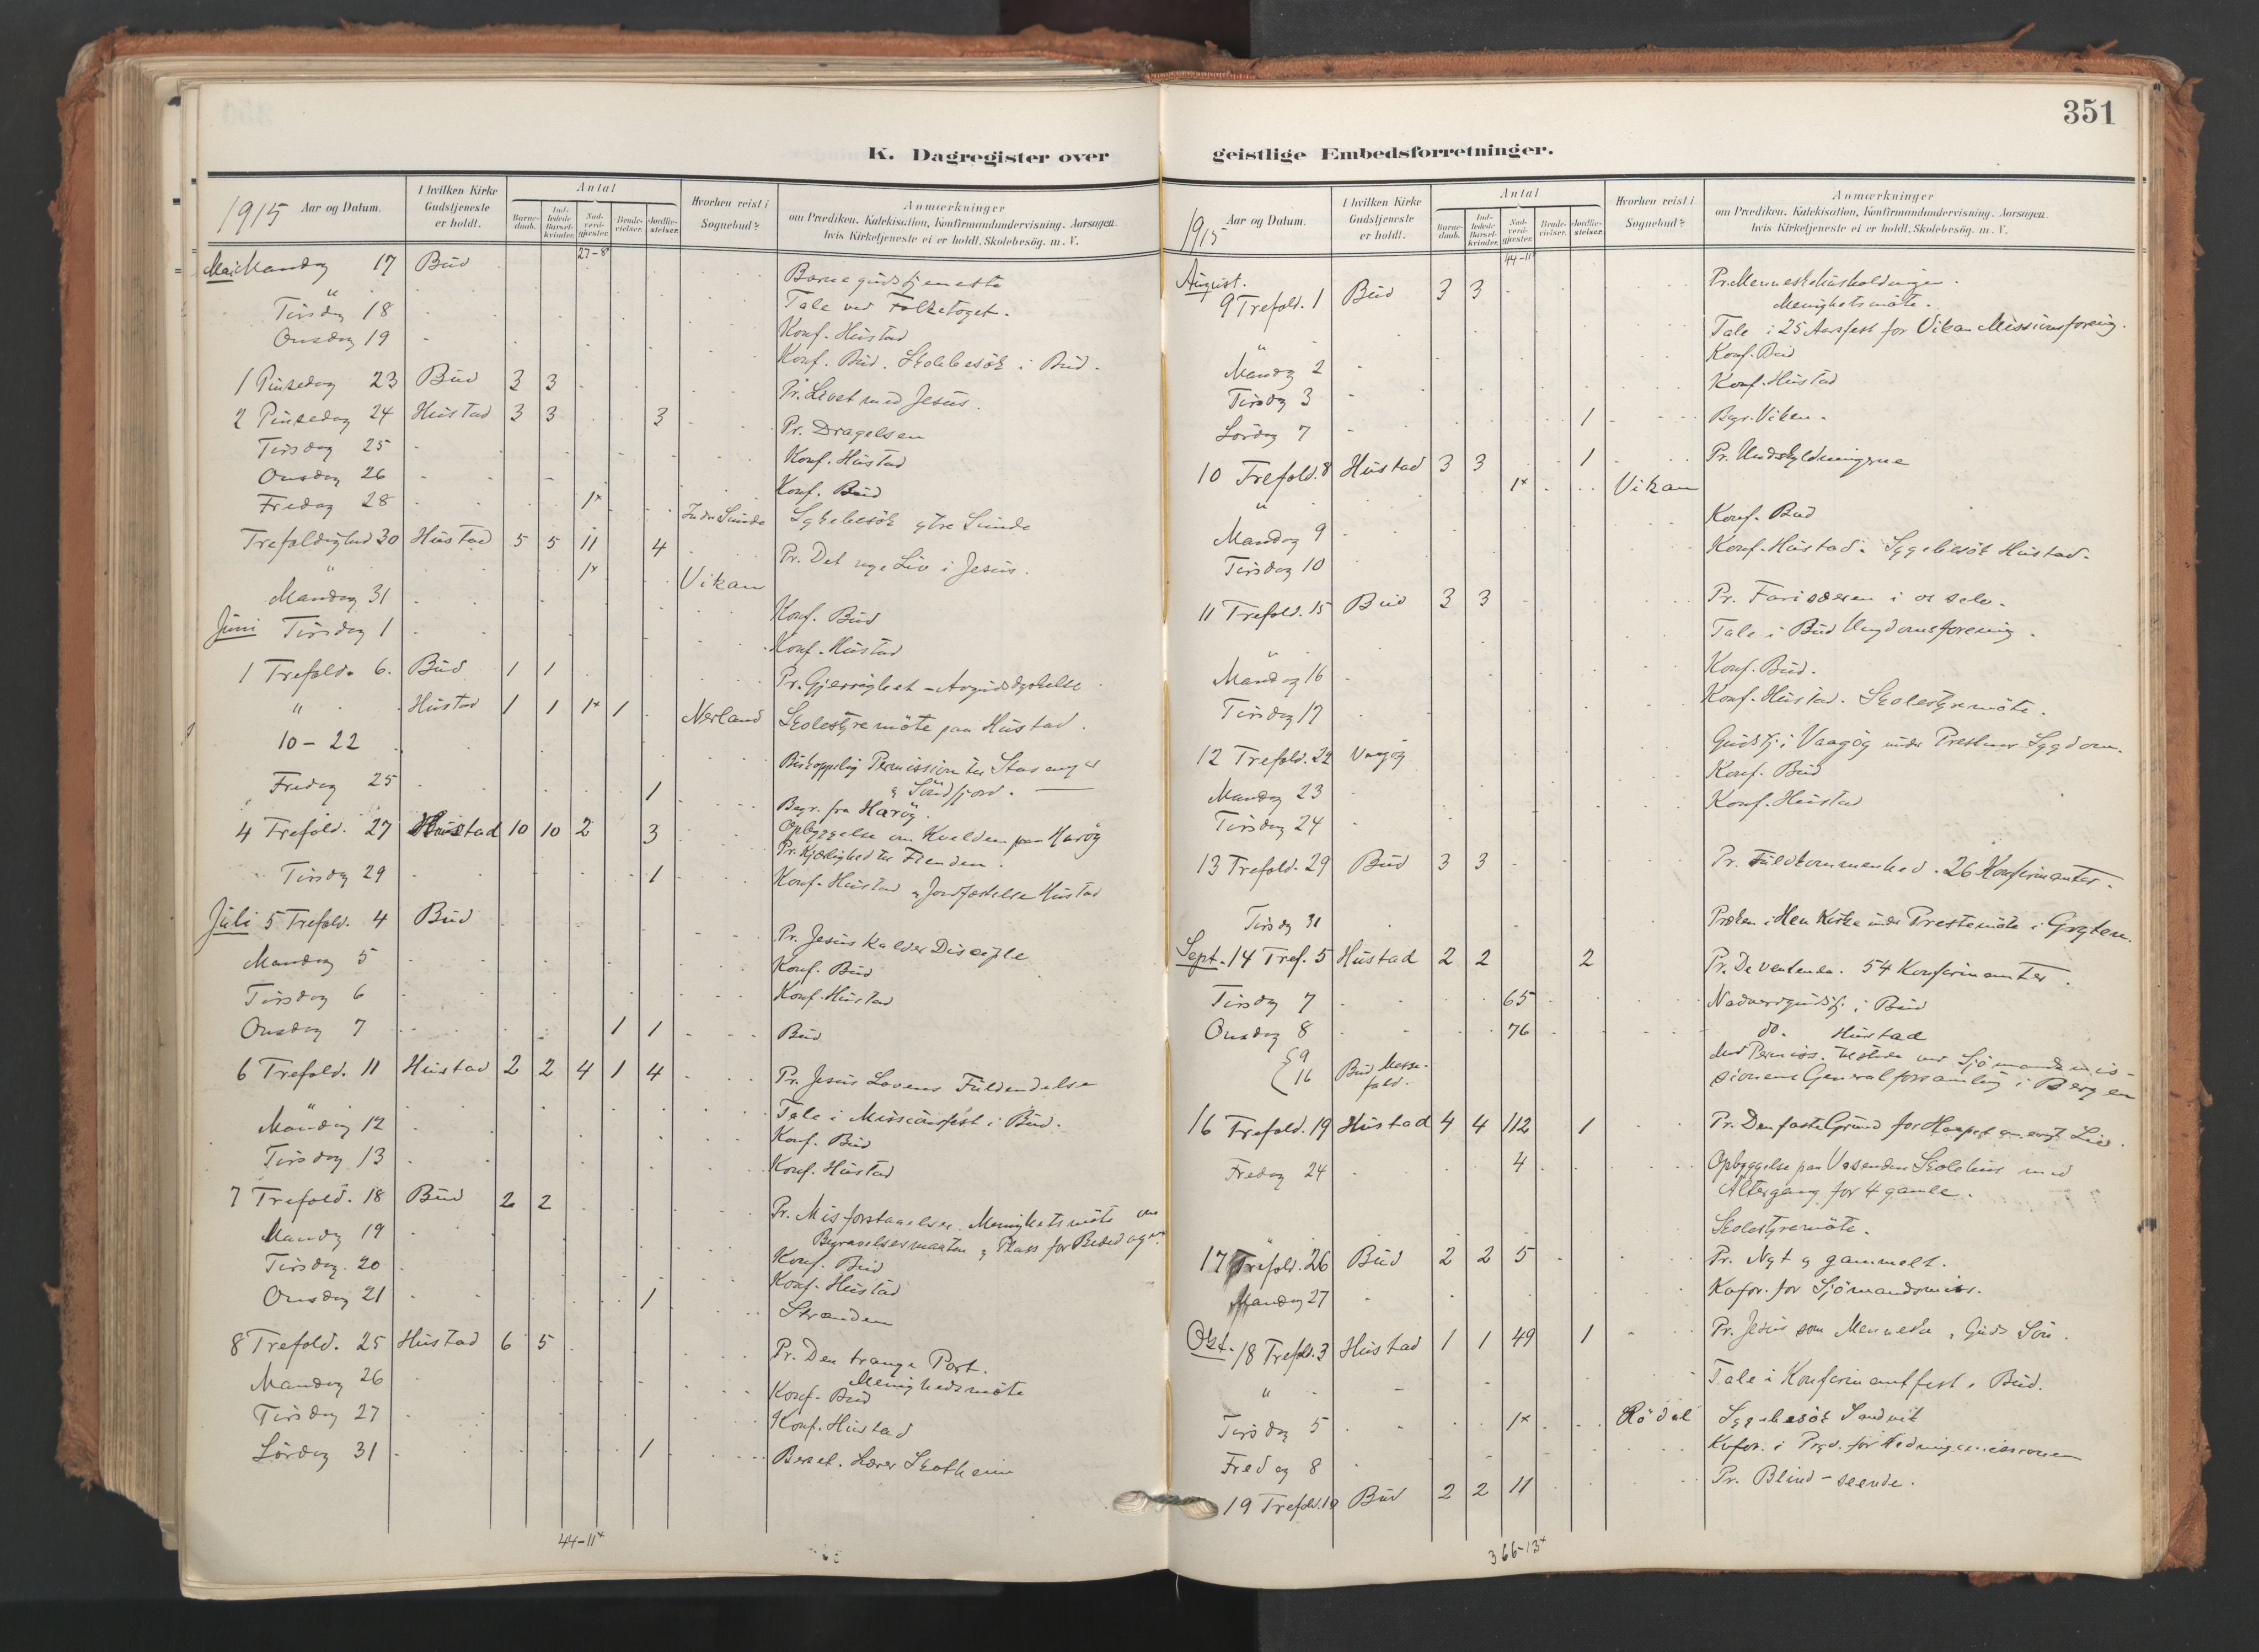 351
K. Dagregister over geistlige Embedsforretninger.
1915 Aar og Datum.
I hvilken Kirke Gudstjeneste er holdt.
Antal
Barnedaab.
Indledede Barselkvinder.
Nadverdgjæster.
Brudevielser.
Jordfæstelser.
Hvorhen reist i Sognebud?
Anmærkninger om Prædiken, Katekisation, Konfirmandundervisning, Aarsagen hvis Kirketjeneste ei er holdt, Skolebesøg. m. V.
27-8x
Mai Mandag 17 Bud Barnegudstjeneste
" Tale ved Folketoget.
Tirsdag 18 Konf. Hustad
Onsdag 19 Konf. Bud. Skolebesök i Bud.
1 Pinsedag 23 Bud 3 3 Pr. Livet med Jesus.
2 Pinsedag 24 Hustad 3 3 3 Pr. Dragelsen
Tirsdag 25 Konf. Hustad
Onsdag 26 Konf. Bud
Fredag 28 1x Indre Sunde Sykebesök ytre Sunde
Trefoldighed 30 Hustad 5 5 11 4 Pr. Det nye Liv i Jesus.
" 1x Vikan
Mandag 31 Konf. Bud
Juni Tirsdag 1 Konf. Hustad
1 Trefold. 6. Bud 1 1 Pr. Gjerrighet - Avgudsdyrkelse
" Hustad 1 1 1x 1 Nerland Skolestyremöte paa Hustad.
10-22 Biskoppelig Permission til Stavanger
& Söndfjord.
Fredag 25 1 Begr. fra Haröy.
Opbyggelse om Kvelden paa Haröy
4 Trefold. 27 Hustad 10 10 2 3 Pr. Kjærlighed til Fienden.
Tirsdag 29 1 Konf. Hustad & Jordfæstelse Hustad
Juli 5 Trefold. 4 Bud Pr. Jesus kalder Disciple
Mandag 5 Konf. Bud
Tirsdag 6 Konf. Hustad
Onsdag 7 1 1 Bud
6 Trefold. 11 Hustad 2 2 4 1 4 Pr. Jesus Lovens Fuldendelse
" Tale i Missionsfest i Bud.
Mandag 12 Konf. Bud
Tirsdag 13 Konf. Hustad
7 Trefold. 18 Bud 2 2 Pr. Misforstaaelser. Menighetsmöte om
Begravelsesmaaten & Plass for
Mandag 19 Konf. Bud
Tirsdag 20 Konf. Hustad
Onsdag 21 1 Stranden
8 Trefold. 25 Hustad 6 5 Pr. Den trange Port.
Menighedsmöte
Mandag 26 Konf. Bud
Tirsdag 27 Konf. Hustad
Lördag 31 1 Lærer Skotheim
44-11x
1915 Aar og Datum.
I hvilken Kirke Gudstjeneste er holdt.
Antal
Barnedaab.
Indledede Barselkvinder.
Nadverdgjæster.
Brudevielser.
Jordfæstelser.
Hvorhen reist i Sognebud?
Anmærkninger om Prædiken, Katekisation, Konfirmandundervisning, Aarsagen hvis Kirketjeneste ei er holdt, Skolebesøg. m. V.
44-11x
August.
9 Trefold. 1 Bud 3 3 Pr. Menneskehusholdningen.
Menighetsmöte.
" Tale i 25 Aarsfest for Vikan Missionsforening.
Mandag 2 Konf. Bud
Tirsdag 3 Konf. Hustad
Lördag 7 1 Begr. Viken.
10 Trefold. 8 Hustad 3 3 1 Pr. Undskyldningerne
" 1x Vikan
Mandag 9 Konf. Bud
Tirsdag 10 Konf. Hustad. Sygebesök Hustad.
11 Trefold. 15 Bud 3 3 Pr. Farisæeren i os selv.
" Tale i Bud Ungdomsforening.
Mandag 16 Konf. Bud.
Tirsdag 17 Konf. Hustad. Skolestyremöte.
12 Trefold. 22 Vaagöy Gudstj. i Vaagöy under Prestens Sygdom.
Mandag 23 Konf. Bud
Tirsdag 24 Konf. Hustad
13 Trefold. 29 Bud 3 3 Pr. Fuldkommenhed. 26 Konfirmanter.
Tirsdag 31 Præken i Hen Kirke under Prestemöte i Gryten.
Sept. 14 Tref. 5 Hustad 2 2 2 Pr. De ventende. 54 Konfirmanter.
Tirsdag 7 65 Nadverdgudstj. i Bud
Onsdag 8 76 do. Hustad
9
16 Bud Messefald. Med Permiss. tilstede ved Sjömandsmis-
sionens Generalforsamling i Bergen
16 Trefold. 19 Hustad 4 4 112 1 Pr. Den faste Grund for Haapet om evigt Liv.
Fredag 24 4 Opbyggelse paa Vasenden Skolehus med
Altergang for 4 gamle.
Skolestyremöte.
17 Trefold. 26 Bud 2 2 5 Pr. Nyt & gammelt.
Mandag 27 for Sjömandsmiss.
Okt. 18 Trefold. 3 Hustad 1 1 49 1 Pr. Jesus som Menneske & Guds Sön.
" Tale i Konfirmantfest i Bud.
Tirsdag 5 1x Rödal Sygebesök Sandvik
Fredag 8
19 Trefold. 10 Bud 2 2 11 Pr. Blind - seende.
366-13x